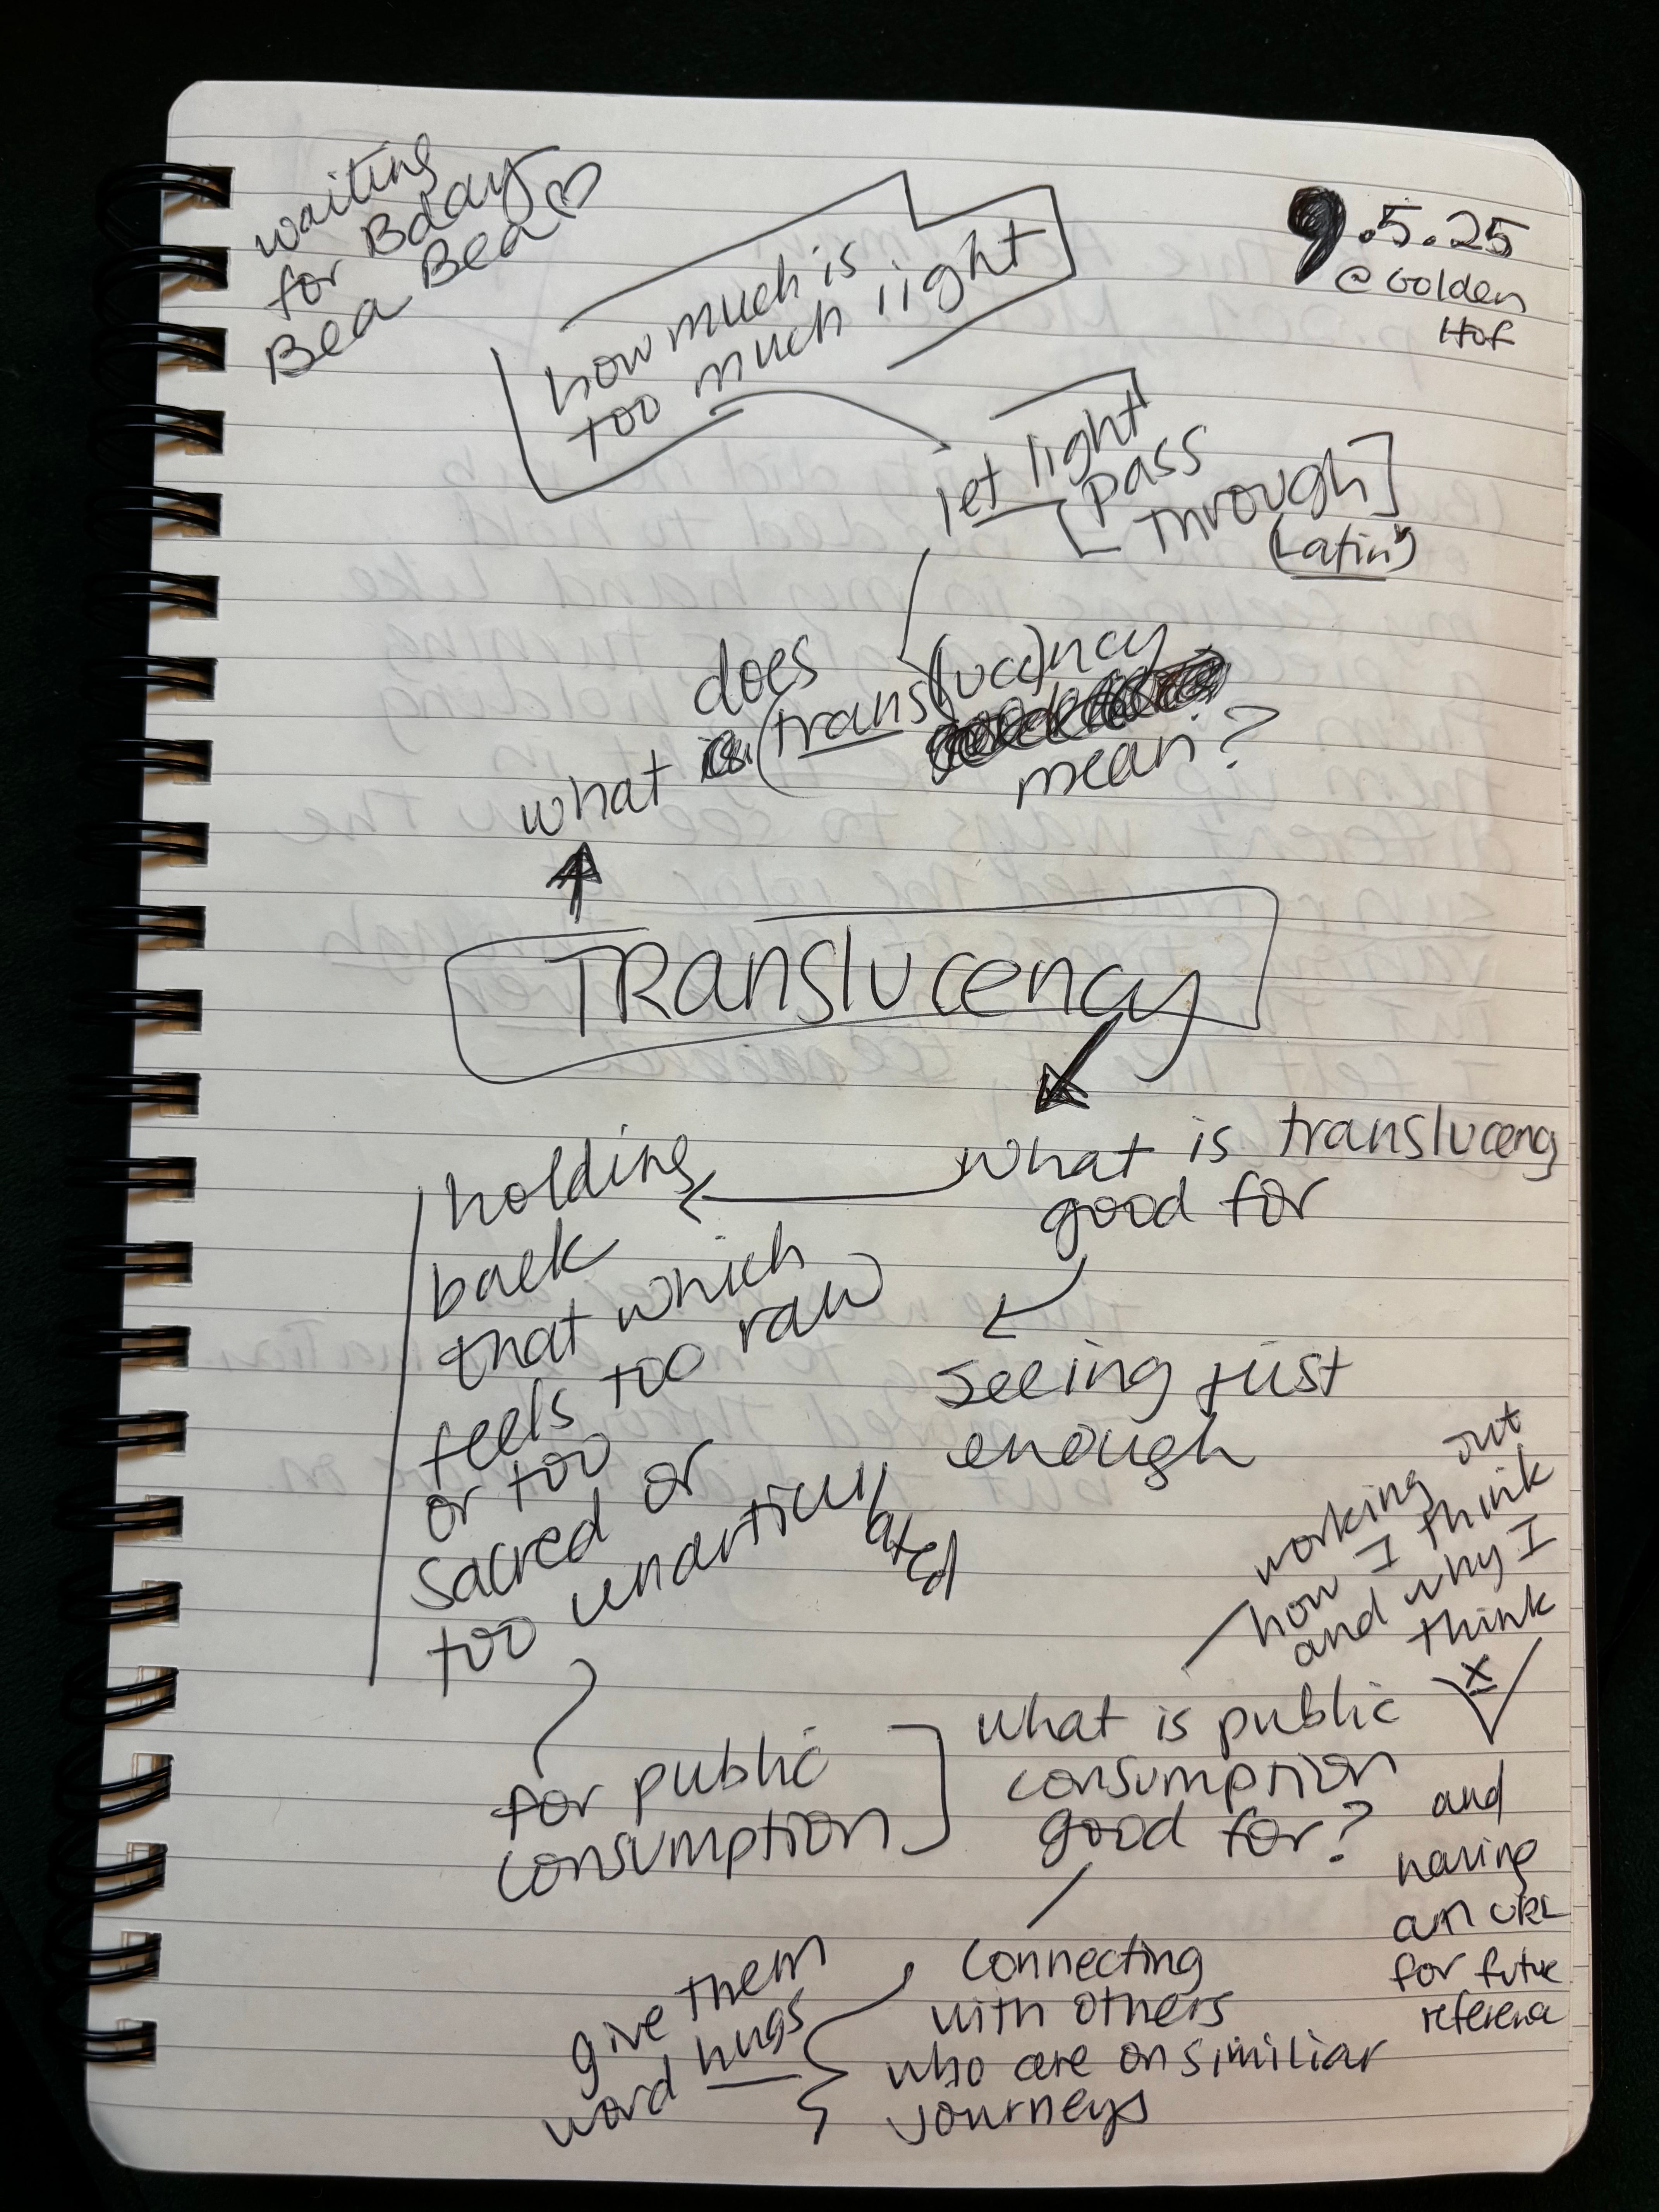 waiting
for Bday
Bea Bea
9.5.25
@ Golden
Hof
how much is
too much light
let light
[pass
through]
(Latin)
does
what is (trans(luce)ncy
mean?
TRANSlUCENCY
what is translucency
good for
holding
back
that which
feels too raw
or too
sacred or
too unarticulated
seeing just
enough
for public
consumption
what is public
consumption
good for?
working out
how I think
and why I
think
and
having
an URL
for future
reference
connecting
with others
who are on similiar
journeys
give them
word hugs